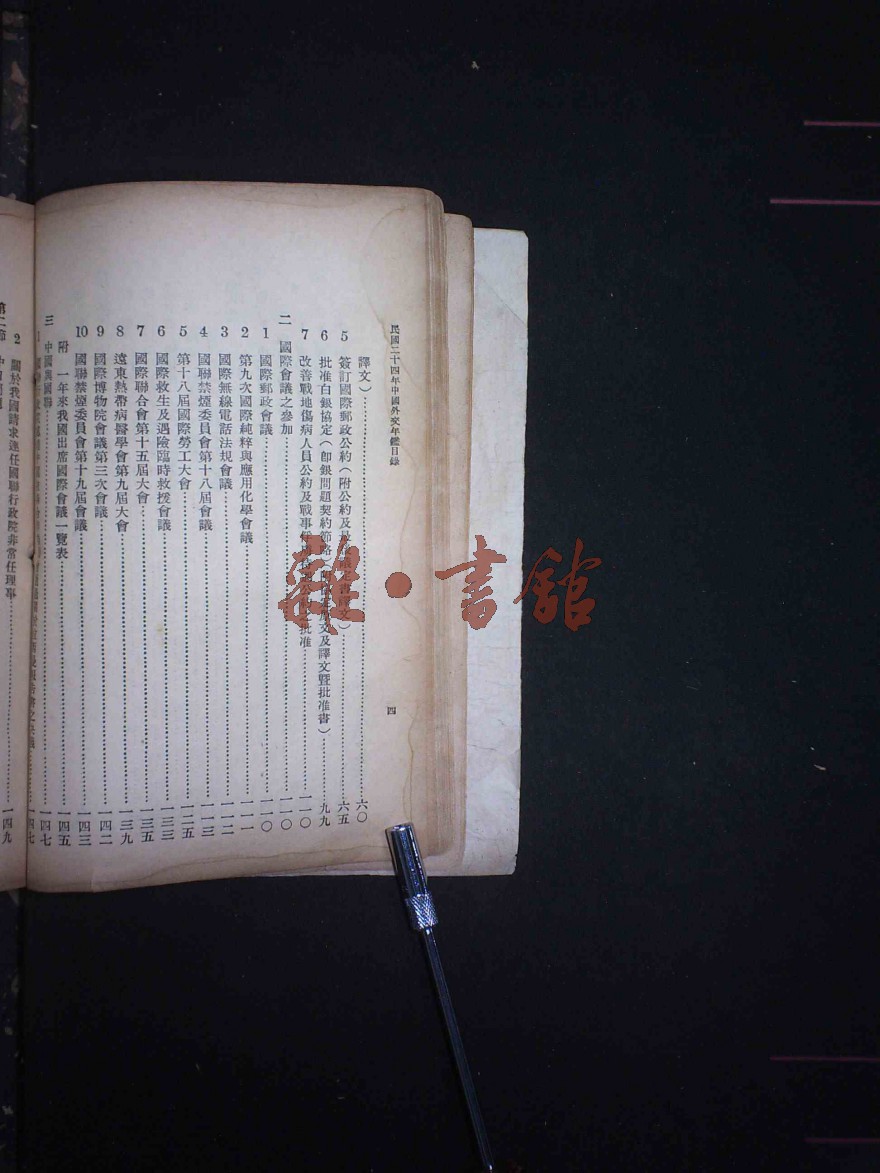 民國二十四年中國外交年鑑目錄
四
譯文)……六〇
5 簽訂國際郵政公約(附公約及最後議定書譯文)……六五
6 批准白銀協定(即銀問題契約節略)文及譯文暨批准書)……九九
7 改善戰地傷病人員公約及戰事俘批准……一一〇
二 國際會議之參加……一一〇
1 國際郵政會議……一一〇
2 第九次國際純粹與應用化學會議……一一一
3 國際無線電話法規會議……一一二
4 國聯禁煙委員會第十八屆會議……一一三
5 第十八屆國際勞工大會……一二五
6 國際救生及遇險臨時救援會議……一三三
7 國際聯合會第十五屆大會……一三五
8 遠東熱帶病醫學會第九屆大會……一三九
9 國際博物院會議第三次會議……一四二
10 國聯禁煙委員會第十九屆會議……一四三
附 一年來我國出席國際會議一覽表……一四五
三 中國與國聯……一四七
1 ……一四七
2 關於我國請求連任國聯行政院非常任理事……一四九
第二節
雜·書館